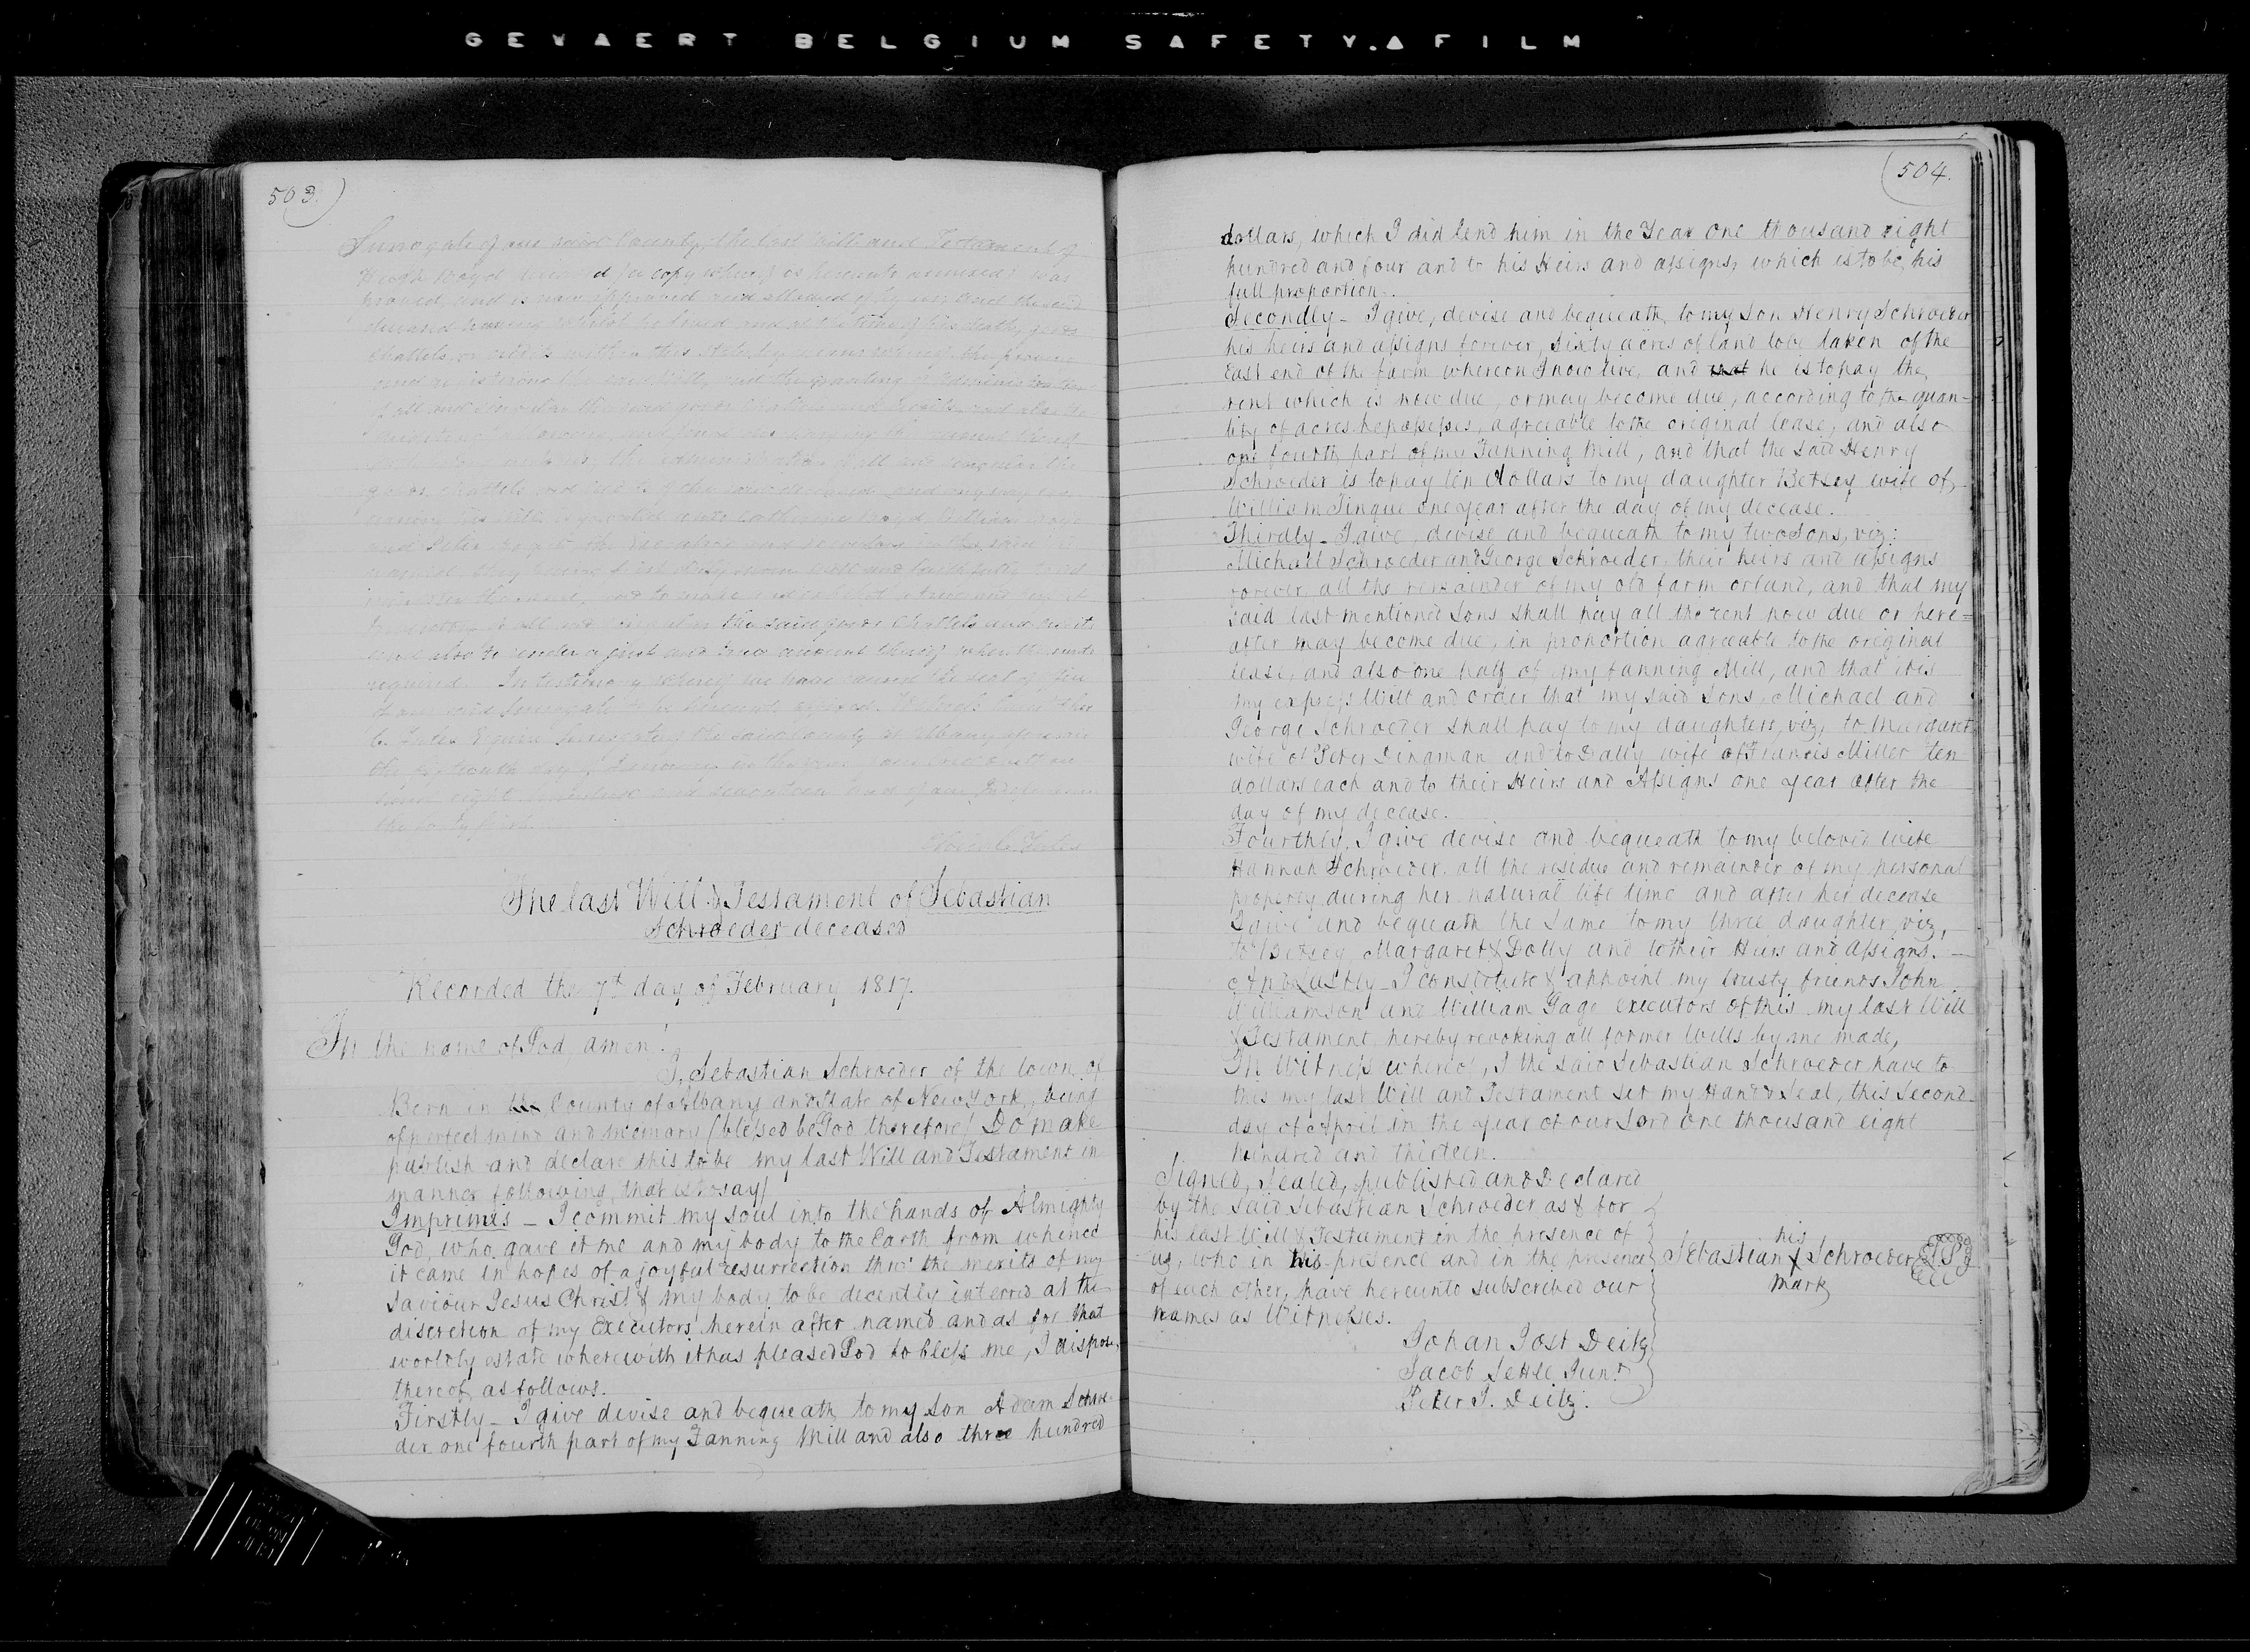 GEVAERT BELGIUM SAFETY.▲FILM
503.
Surrogate of our said County, the last Will and Testament of
Hugh Boyd deceased (a copy whereof is hereunto annexed) was
proved, and is now approved and allowed of by us; and the said
deceased having whilst he lived and at the time of his death, goods
chattels, or credits within this State, by means whereof the proving
and registering the said Will, and the granting of administration
of all and singular the said goods chattels and credits, and also the
the administration of all and singular the
goods, chattels and credits of the said deceased, and any way con-
cerning his Will, is granted unto Catherine Boyd William
and Peter
named, they being first duly sworn well and faithfully to ad
minister the same, and to make and exhibit a true and perfect
Inventory of all and singular the said goods Chattels and credits
and also to render a just and true account thereof when thereunto
required. In testimony whereof we have caused the seal of
of our said Surrogate to be hereunto affixed. Witness
Surrogate of the said County at Albany aforesaid
the day of January in the year
eight hundred and seventeen and of our Independence
the forty first.
The last Will & Testament of Sebastian
Schroeder deceased
Recorded the 7th day of February 1817.
In the name of God, amen!
I, Sebastian Schroeder of the town of
Bern in the County of Albany and State of New York, being
of perfect mind and memory (blessed be God therefore) Do make
publish and declare this to be my last Will and Testament in
manner following, that is to say/
Imprimis – I commit my soul into the hands of Almighty
God, who gave it me and my body to the Earth from whence
it came in hopes of a joyful resurrection thro' the merits of my
Saviour Jesus Christ & my body to be decently interred at the
discretion of my Executors herein after named and as for that
worldly estate wherewith it has pleased God to bless me, I dispose
thereof as follows.
Firstly – I give devise and bequeath to my son Adam Schroe-
der one fourth part of my Fanning Mill and also three hundred
504.
dollars, which I did lend him in the Year One thousand eight
hundred and four and to his Heirs and assigns, which is to be, his
full proportion.
Secondly – I give, devise and bequeath, to my Son Henry Schroeder
his heirs and assigns forever, Sixty acres of land to be taken of the
East end of the farm whereon I now live, and that he is to pay the
rent which is now due, or may become due, according to the quan-
tity of acres he possesses, agreeable to the original lease, and also
one fourth part of my Fanning Mill, and that the said Henry
Schroeder is to pay ten dollars to my daughter Betsey wife of,
William Tinque one year after the day of my decease.
Thirdly – I give, devise and bequeath to my two Sons, viz:
Michael Schroeder and George Schroeder, their heirs and assigns
forever all the remainder of my old farm or land, and that my
said last mentioned Sons shall pay all the rent now due or here=
after may become due, in proportion agreeable to the original
lease, and also one half of my fanning Mill, and that it is
my express Will and order that my said Sons, Michael and
George Schroeder shall pay to my daughters, viz, to Margaret
wife of Peter Dingman and to Dally wife of Francis Miller ten
dollars each and to their Heirs and Assigns one year after the
day of my decease.
Fourthly, I give devise and bequeath to my beloved wife
Hannah Schroeder, all the residue and remainder of my personal
property during her natural life time and after her decease
I give and bequeath the same to my three daughter, viz,
to Betsey, Margaret & Dolly and to their Heirs and assigns.
And Lastly – I constitute & appoint my trusty friends John
Williamson and William Gage executors of this my last Will
& Testament, hereby revoking all former Wills by me made,
In Witness whereof, I the said Sebastian Schroeder have to
this my last Will and Testament set my Hand & Seal, this Second
day of April in the year of our Lord one thousand eight
hundred and thirteen.
Signed, Sealed, published and Declared
by the said Sebastian Schroeder as & for
his last Will & Testament in the presence of
us, who in his presence and in the presence
of each other, have hereunto subscribed our
names as Witnesses.
his
Sebastian X Schroeder L.S.
Mark
Johan Jost Deitz
Jacob Settle Junr.
Peter J. Deitz.